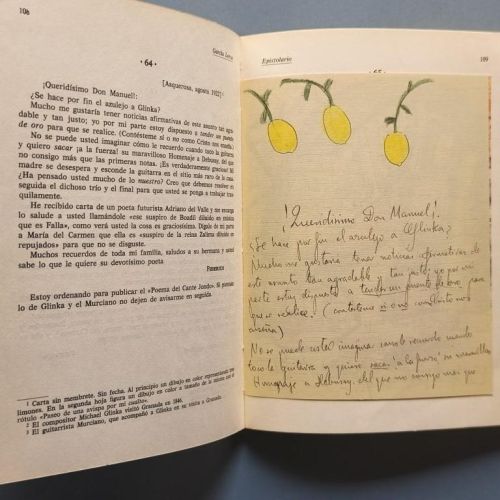 108
García Lorca
· 64 ·
[Asquerosa, agosto 1922] ¹
¡Queridísimo Don Manuel!:
¿Se hace por fin el azulejo a Glinka?
Mucho me gustaría tener noticias afirmativas de este asunto tan agra-
dable y tan justo; yo por mi parte estoy dispuesto a tender un puente
de oro para que se realice. (Contésteme sí o no como Cristo nos enseña.)
No se puede usted imaginar cómo le recuerdo cuando toco la guitarra
y quiero sacar ¡a la fuerza! su maravilloso Homenaje a Debussy, del que
no consigo más que las primeras notas. ¡Es verdaderamente gracioso! Mi
madre se desespera y esconde la guitarra en el sitio más raro de la casa.
¿Ha pensado usted mucho de lo nuestro? Creo que debemos resolver en
seguida el dichoso trío y el final para que usted se ponga a trabajar tran-
quilamente.
He recibido carta de un poeta futurista Adriano del Valle y me encarga
lo salude a usted llamándole «ese suspiro de Boadil diluido en música
que es Falla», como verá usted la cosa es graciosísima. Dígale de mi parte
a María del Carmen que ella es «suspiro de la reina Zalma diluido en
repujados» para que no se disguste.
Muchos recuerdos de toda mi familia, saludos a su hermana y usted
sabe lo que le quiere su devotísimo poeta
FEDERICO
Estoy ordenando para publicar el «Poema del Cante Jondo». Si piensan
lo de Glinka y el Murciano no dejen de avisarme en seguida.
¹ Carta sin membrete. Sin fecha. Al principio un dibujo en color representando tres
limones. En la segunda hoja figura un dibujo en color a tamaño de la misma con el
rótulo «Paseo de una avispa por mi cuarto».
² El compositor Michael Glinka visitó Granada en 1846.
³ El guitarrista Murciano, que acompañó a Glinka en su visita a Granada.
Epistolario
109
· 65 ·
¡Queridísimo Don Manuel!:
¿Se hace por fin el azulejo a Glinka?
Mucho me gustaría tener noticias afirmativas de
este asunto tan agradable y tan justo; yo por mi
parte estoy dispuesto a tender un puente de oro para
que se realice. (contésteme sí o no como Cristo nos
enseña)
No se puede usted imaginar como le recuerdo cuando
toco la guitarra y quiero sacar ¡a la fuerza! su maravilloso
Homenaje a Debussy, del que no consigo mas que